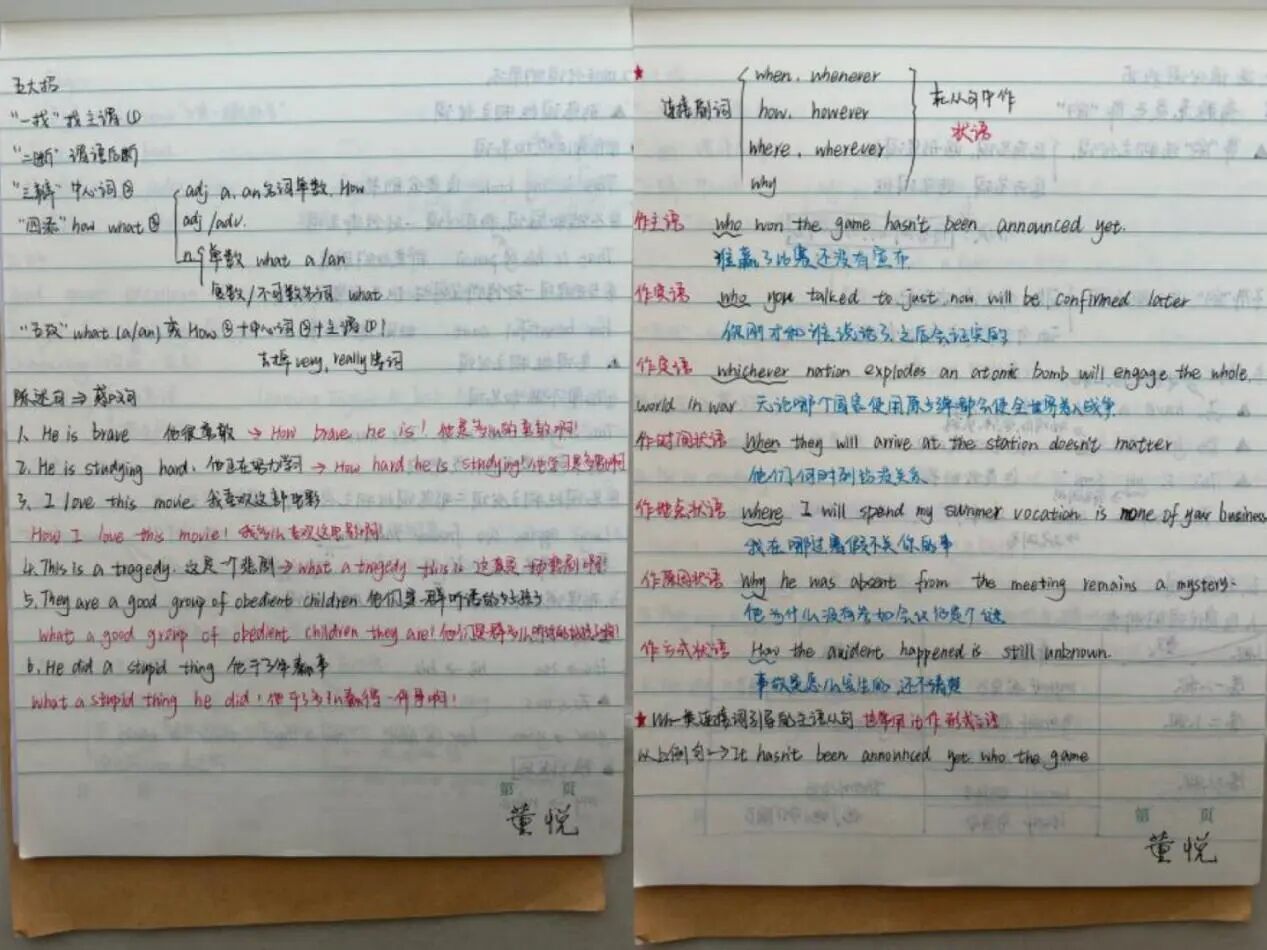 五大招
"一找" 找主谓①
"二断" 谓语后断
"三辩" 中心词②
"四添" how what③
adj a, an 名词单数, How
adj /adv.
n 单数 what a /an
复数/不可数名词 what
"五改" what (a/an) 或 How ③+中心词②+主谓①!
去掉 very, really 等词
陈述句 ⇒ 感叹句
1. He is brave 他很勇敢 → How brave he is! 他是多么的勇敢啊!
2. He is studying hard. 他正在努力学习 → How hard he is studying!
3. I love this movie 我喜欢这部电影
How I love this movie! 我多么喜欢这电影啊!
4. This is a tragedy. 这是一个悲剧 → what a tragedy this is 这真是一场悲剧啊!
5. They are a good group of obedient children 他们是一群听话的好孩子
what a good group of obedient children they are!
6. He did a stupid thing 他干了件蠢事
what a stupid thing he did! 他干了多么蠢得一件事啊!
第 页
董悦
★
连接副词
when, whenever
how, however
where, wherever
why
在从句中作
状语
作主语 who won the game hasn't been announced yet.
谁赢了比赛还没有宣布
作宾语 who you talked to just now will be confirmed later
你刚才和谁说话了之后会证实的
作定语 whichever nation explodes an atomic bomb will engage the whole
world in war 无论哪个国家使用原子弹都会使全世界卷入战争
作时间状语 When they will arrive at the station doesn't matter
他们何时到站没关系
作地点状语 where I will spend my summer vocation is none of your business
我在哪过暑假不关你的事
作原因状语 why he was absent from the meeting remains a mystery.
他为什么没有参加会议仍是个谜
作方式状语 How the axident happened is still unknown.
事故是怎么发生的 还不清楚
★ Wh-类连接词引导的主语从句 也常用it作形式主语
以上例句 → It hasn't been announced yet who the game
第 页
董悦